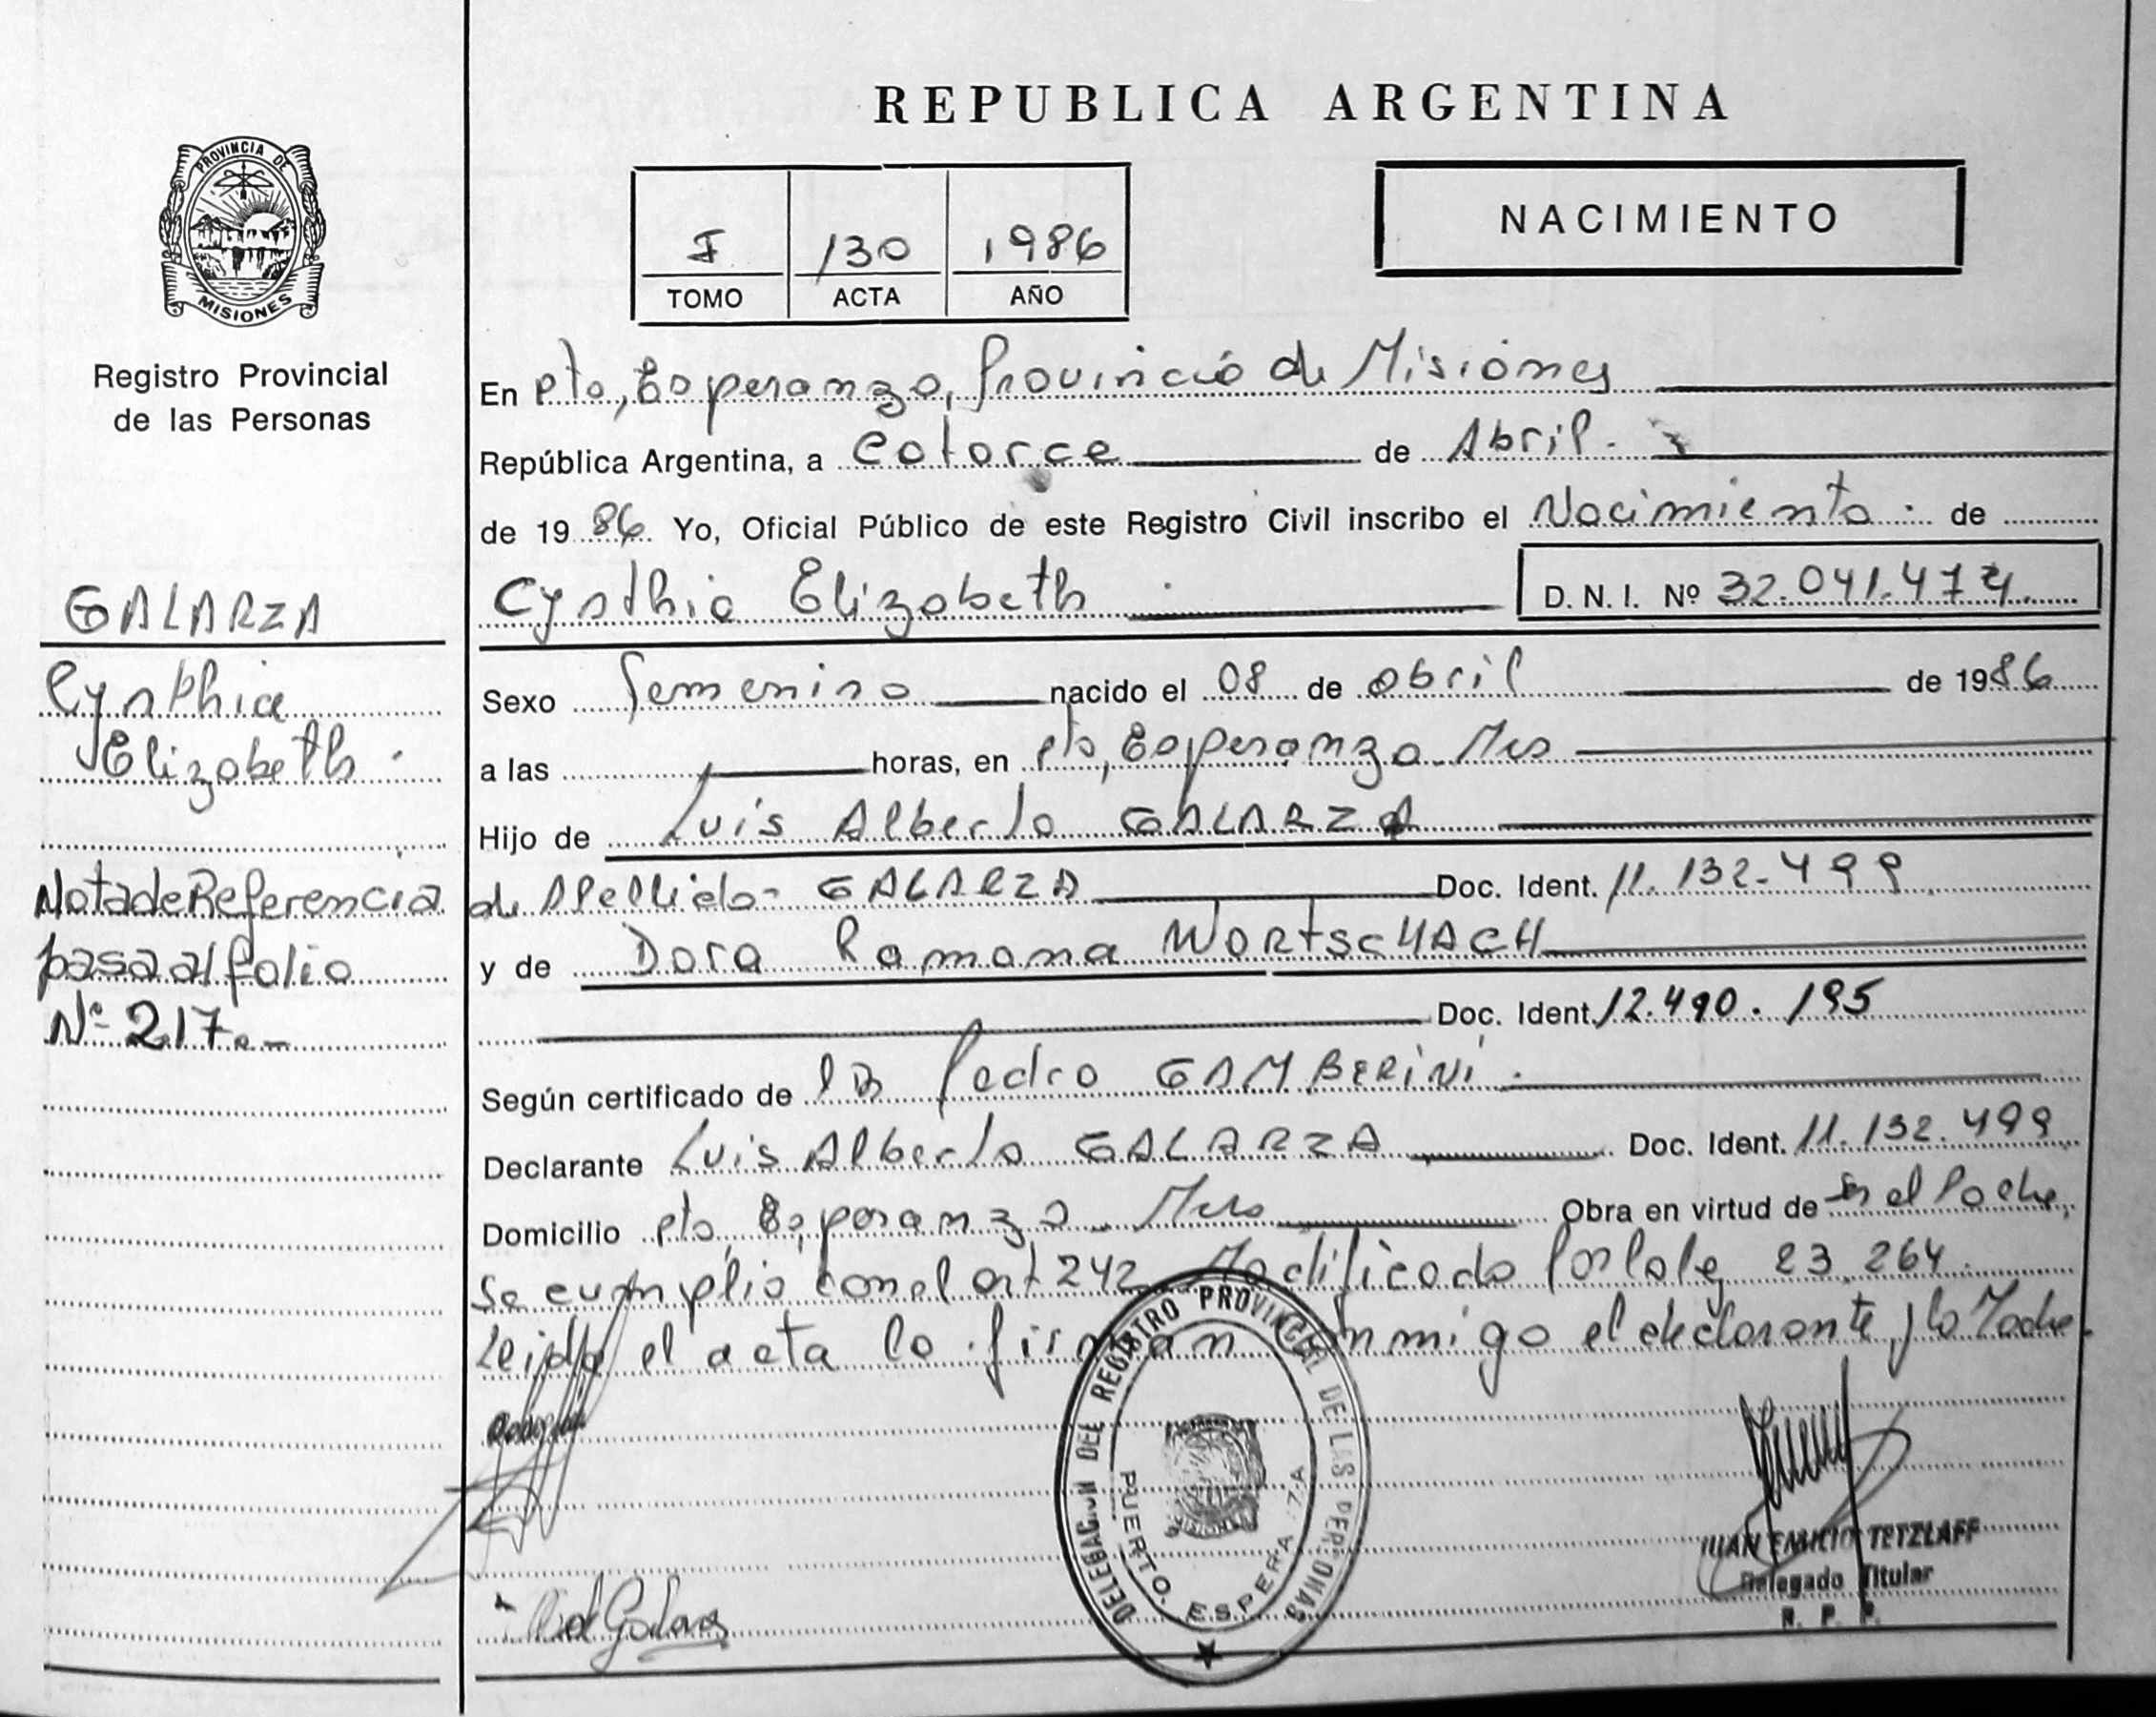 REPUBLICA ARGENTINA
PROVINCIA DE
MISIONES
Registro Provincial
de las Personas
I 130 1986
TOMO ACTA AÑO
NACIMIENTO
GALARZA
Cynthia
Elizabeth
Nota de Referencia
pasa al folio
Nº 217.-
En Pto, Esperanza, Provincia de Misiones
República Argentina, a Catorce de Abril.
de 19 86 Yo, Oficial Público de este Registro Civil inscribo el Nacimiento de
Cynthia Elizabeth D. N. I. Nº 32.041.474
Sexo Femenino nacido el 08 de abril de 1986
a las horas, en Pto, Esperanza Mes
Hijo de Luis Alberto GALARZA
de Apellido- GALARZA Doc. Ident. 11.132.499
y de Dora Ramona WORTSCHACH
Doc. Ident. 12.490.195
Según certificado de Pedro GAMBERINI
Declarante Luis Alberto GALARZA Doc. Ident. 11.132.499
Domicilio Pto, Esperanza Mes Obra en virtud de Ser el Padre,
Se cumplio con el art 242 Modificado Por la ley 23.264
Leida el acta la firman conmigo el declarante, y la Madre.
DELEGACION DEL REGISTRO PROVINCIAL DE LAS PERSONAS
PUERTO ESPERANZA
JUAN EMILIO TETZLAFF
Delegado Titular
R. P. P.